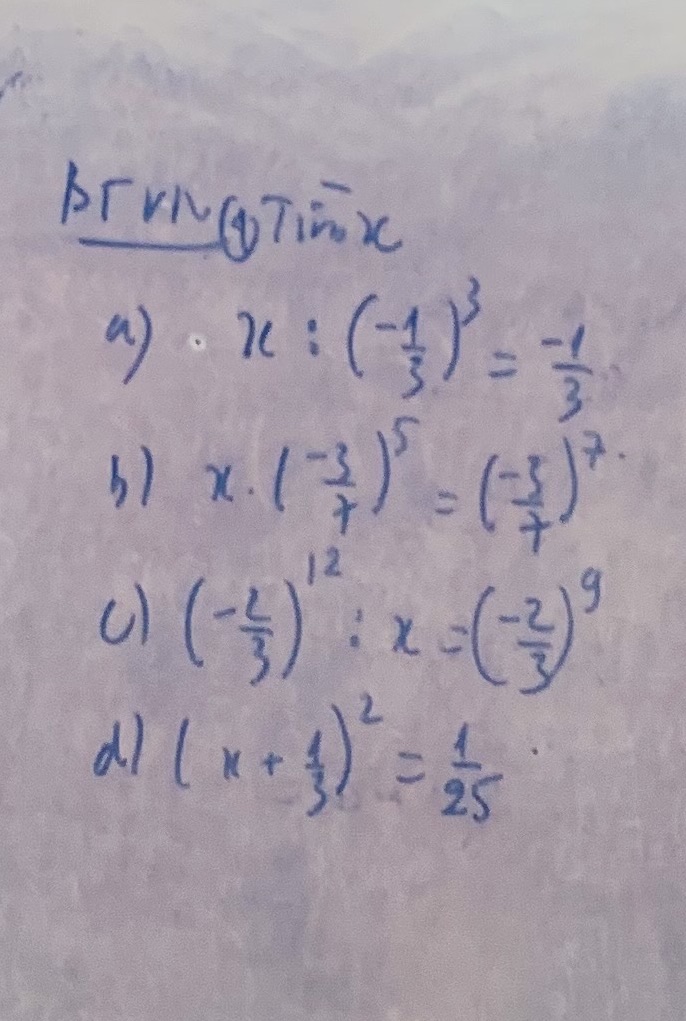 BTVN ① Tìm x
a) x : (-1/3)^3 = -1/3
b) x . (-3/7)^5 = (-3/7)^7.
c) (-2/3)^12 : x = (-2/3)^9
d) (x + 1/3)^2 = 1/25